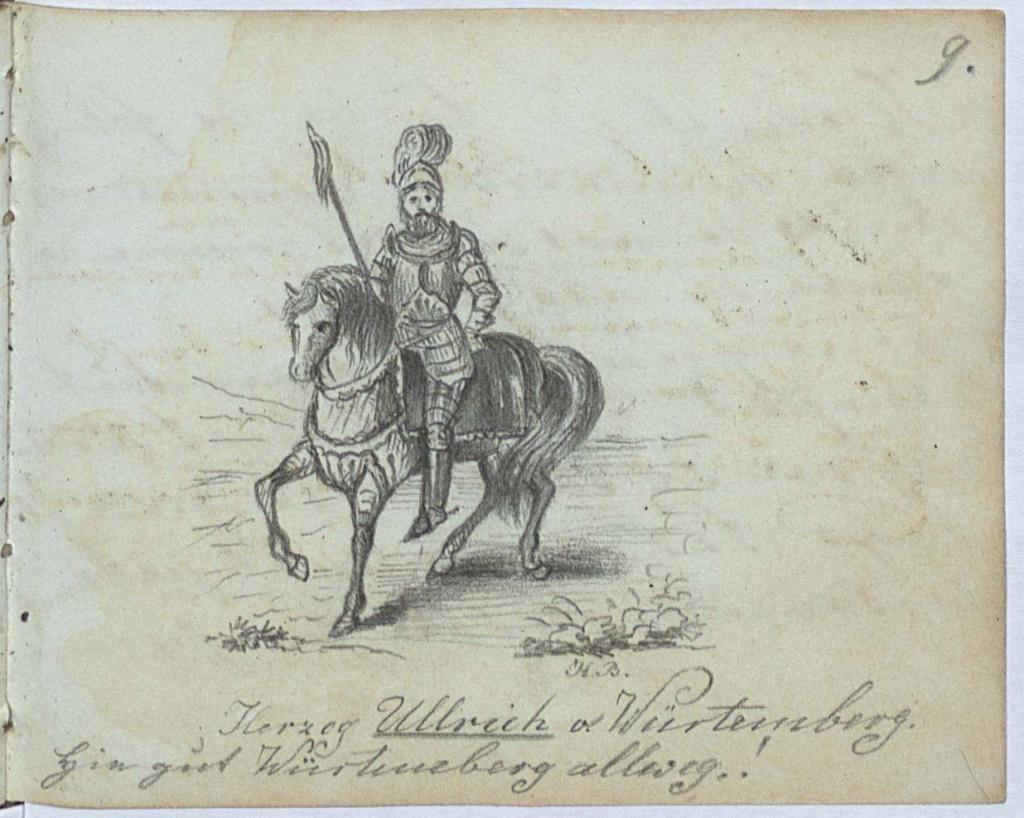 9.
H.B.
Herzog Ullrich v. Würtemberg.
Hie gut Würtemberg allweg.!